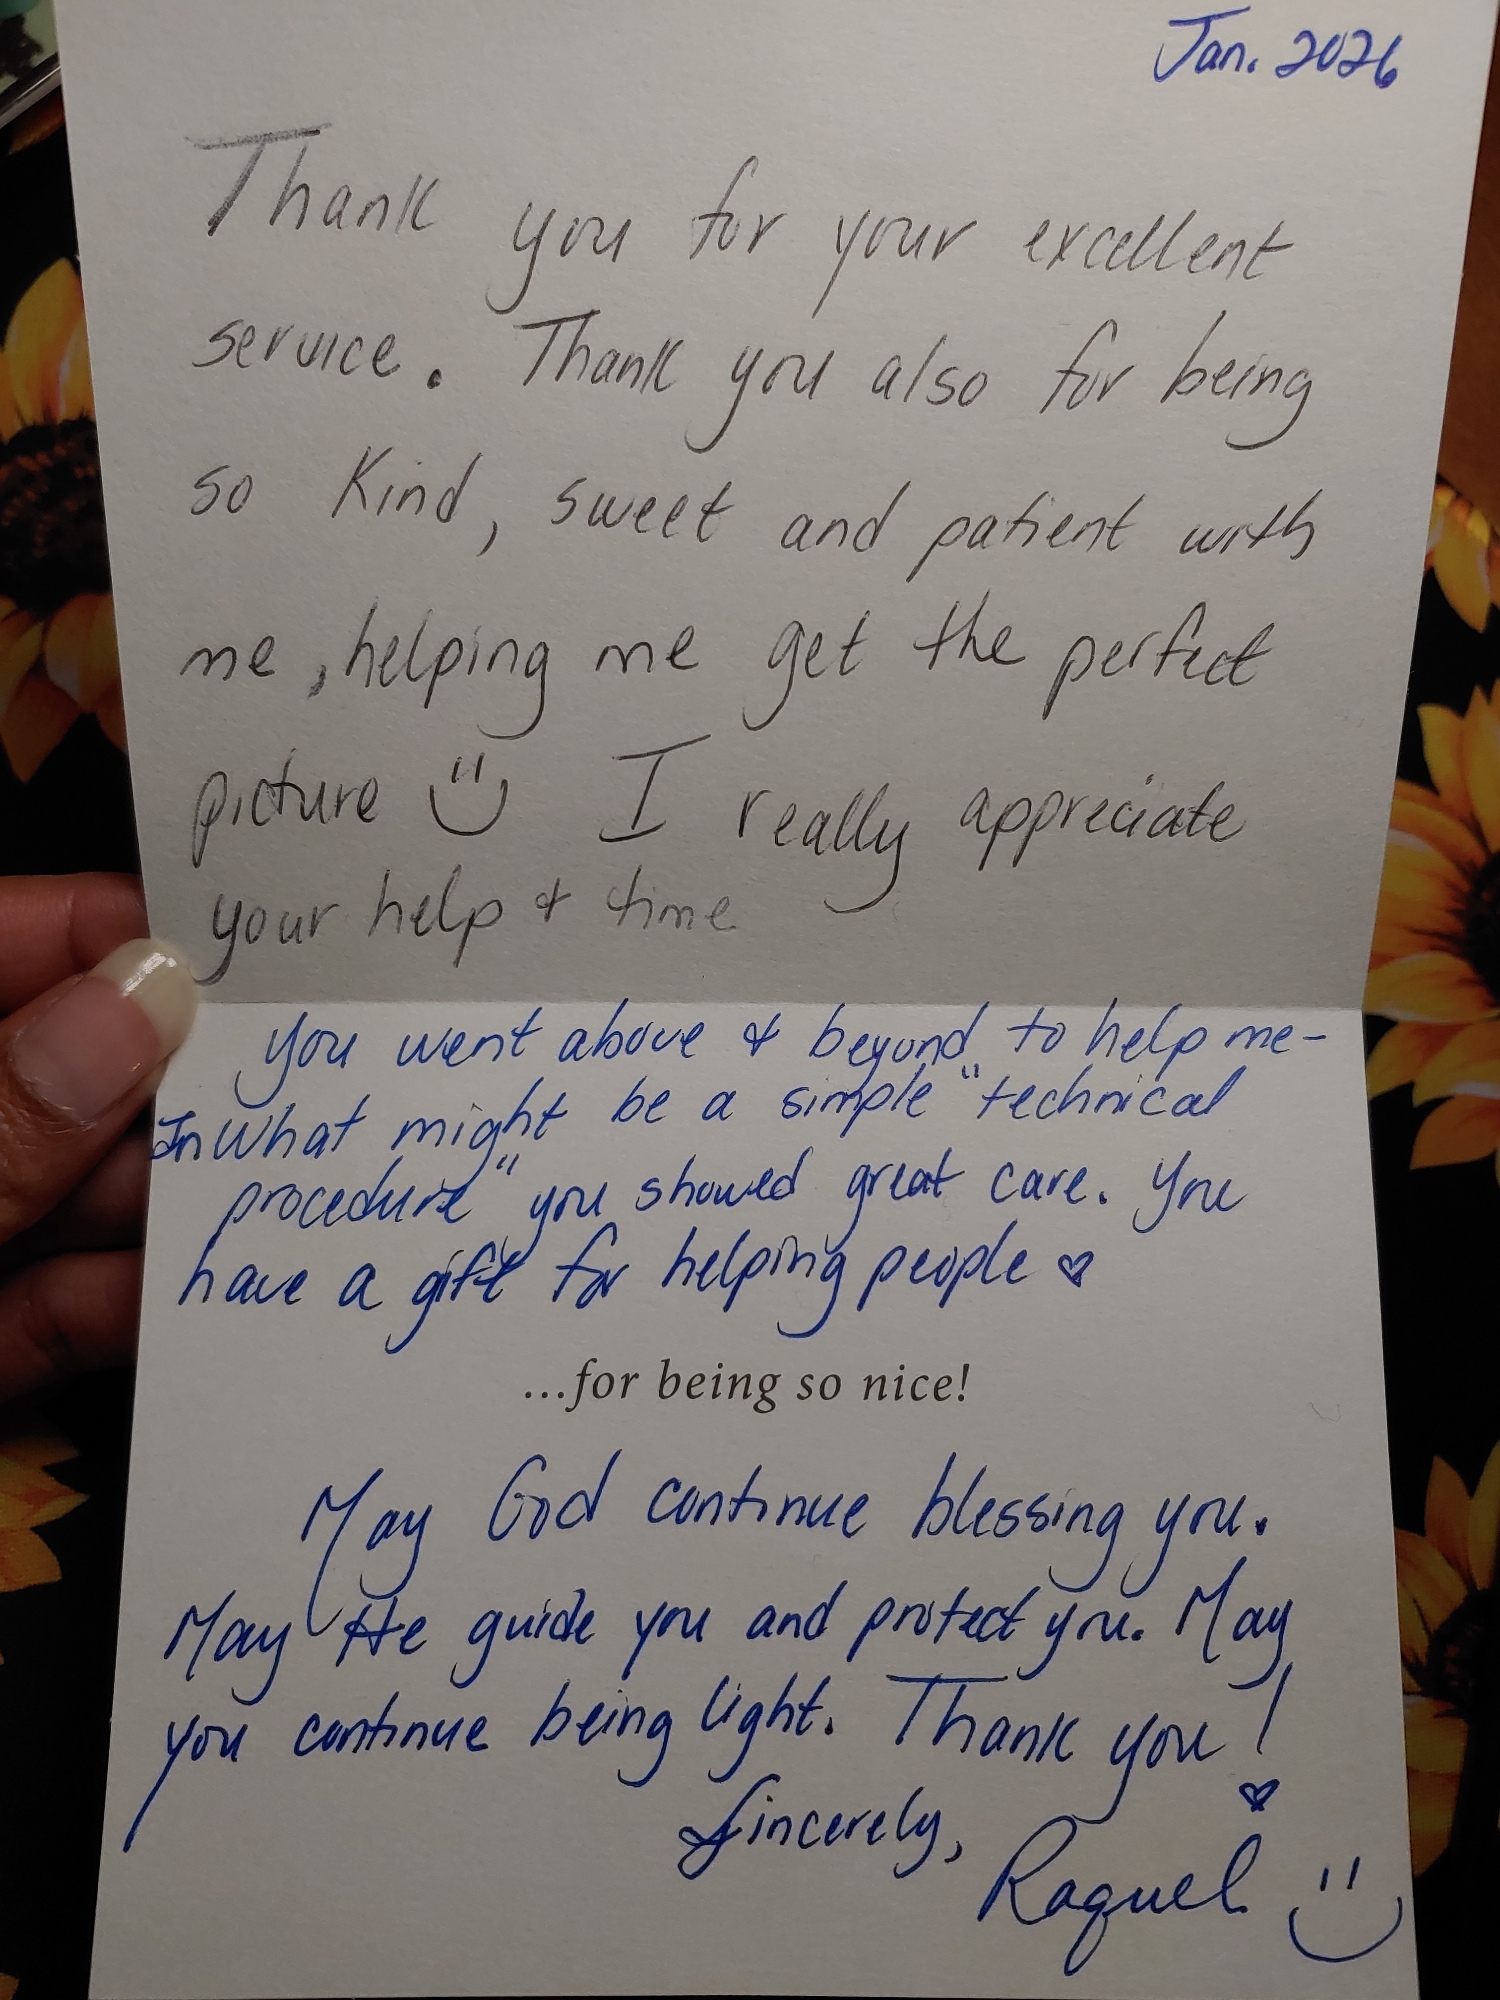 Jan. 2026
Thank you for your excellent
service. Thank you also for being
so kind, sweet and patient with
me, helping me get the perfect
picture I really appreciate
your help & time
You went above & beyond to help me-
In what might be a simple "technical
procedure" you showed great care. You
have a gift for helping people ♡
...for being so nice!
May God continue blessing you.
May He guide you and protect you. May
you continue being light. Thank you!
♡
Sincerely,
Raquel